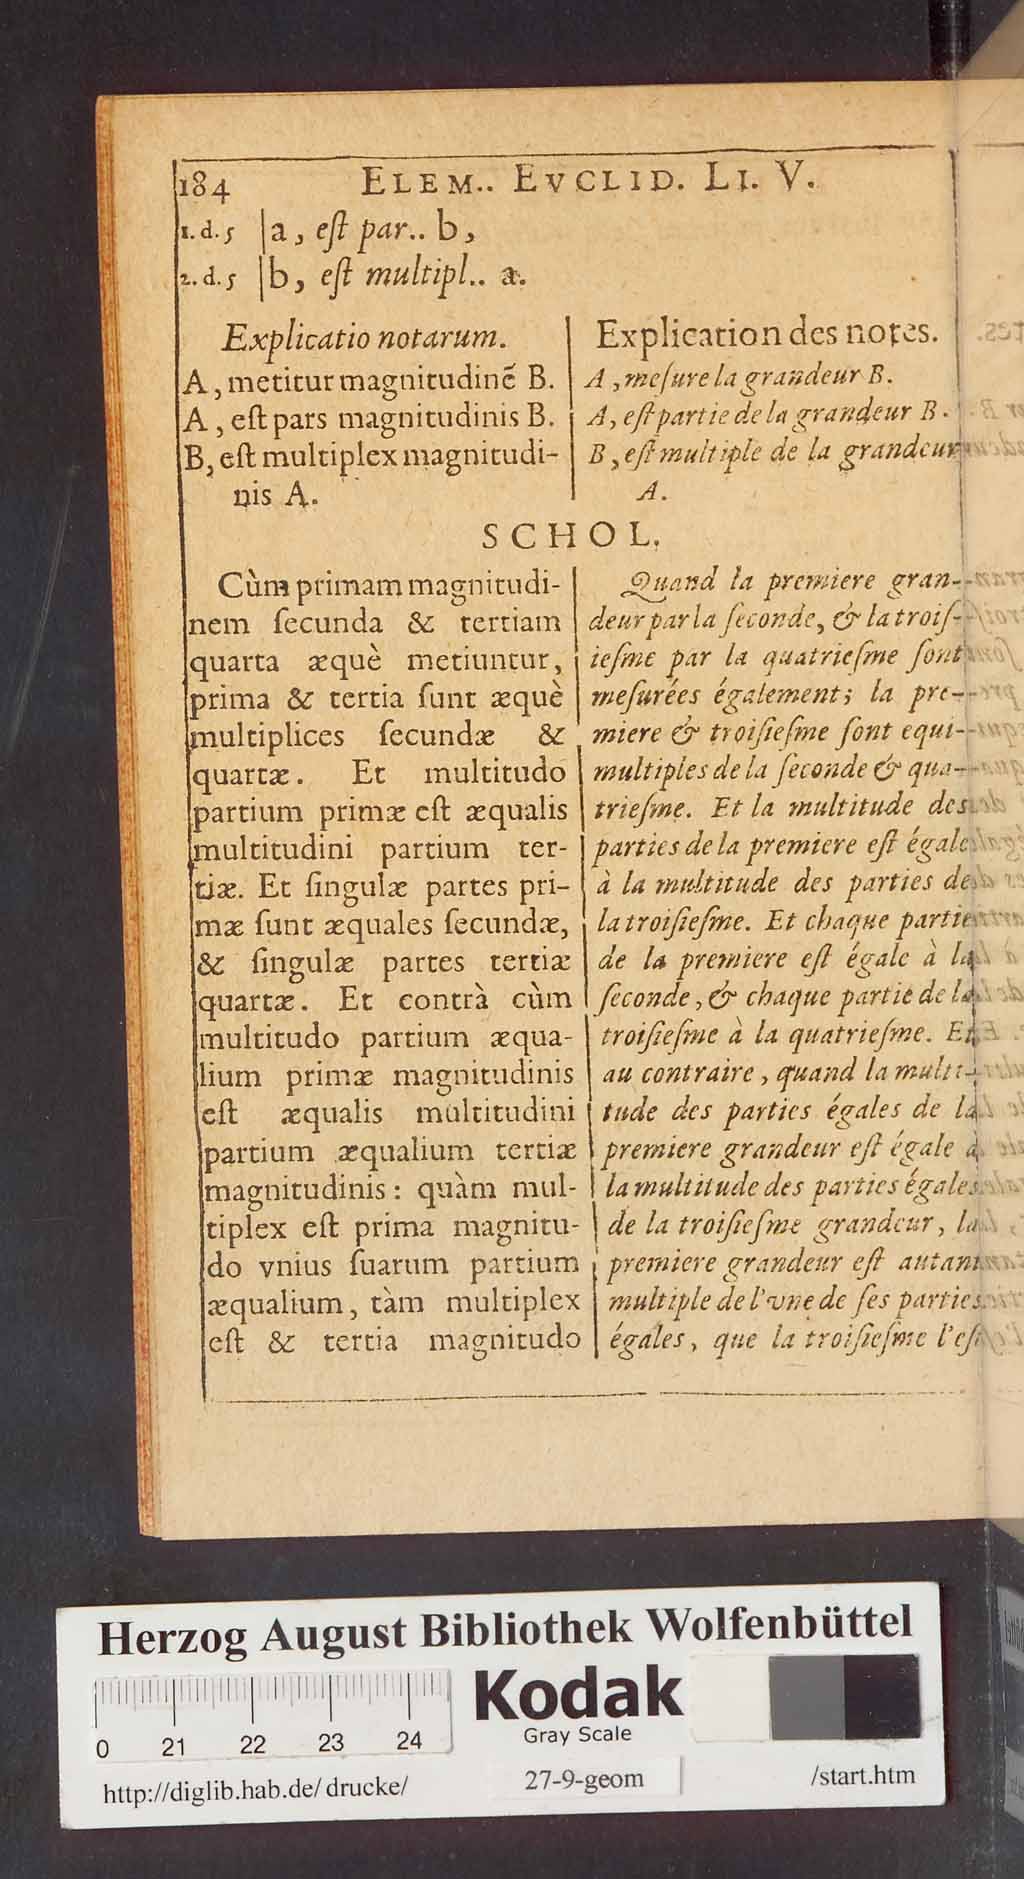 184 ELEM.. EVCLID. LI. V.
1.d.5 |a, eſt par.. b,
2.d.5 |b, eſt multipl.. a.
Explicatio notarum.
A, metitur magnitudinẽ B.
A, eſt pars magnitudinis B.
B, eſt multiplex magnitudi-
nis A.
Explication des notes.
A, meſure la grandeur B.
A, eſt partie de la grandeur B.
B, eſt multiple de la grandeur
A.
SCHOL.
Cùm primam magnitudi-
nem ſecunda & tertiam
quarta æquè metiuntur,
prima & tertia ſunt æquè
multiplices ſecundæ &
quartæ. Et multitudo
partium primæ eſt æqualis
multitudini partium ter-
tiæ. Et ſingulæ partes pri-
mæ ſunt æquales ſecundæ,
& ſingulæ partes tertiæ
quartæ. Et contrà cùm
multitudo partium æqua-
lium primæ magnitudinis
eſt æqualis multitudini
partium æqualium tertiæ
magnitudinis: quàm mul-
tiplex eſt prima magnitu-
do vnius ſuarum partium
æqualium, tàm multiplex
eſt & tertia magnitudo
Quand la premiere gran-
deur par la ſeconde, & la troiſ-
ieſme par la quatrieſme ſont
meſurées également; la pre-
miere & troiſieſme ſont equi-
multiples de la ſeconde & qua-
trieſme. Et la multitude des
parties de la premiere eſt égale
à la multitude des parties de
la troiſieſme. Et chaque partie
de la premiere eſt égale à la
ſeconde, & chaque partie de la
troiſieſme à la quatrieſme. Et
au contraire, quand la multi-
tude des parties égales de la
premiere grandeur eſt égale à
la multitude des parties égales
de la troiſieſme grandeur, la
premiere grandeur eſt autant
multiple de l'vne de ſes parties
égales, que la troiſieſme l'eſt
Herzog August Bibliothek Wolfenbüttel
Kodak
Gray Scale
0 21 22 23 24
http://diglib.hab.de/drucke/ 27-9-geom /start.htm